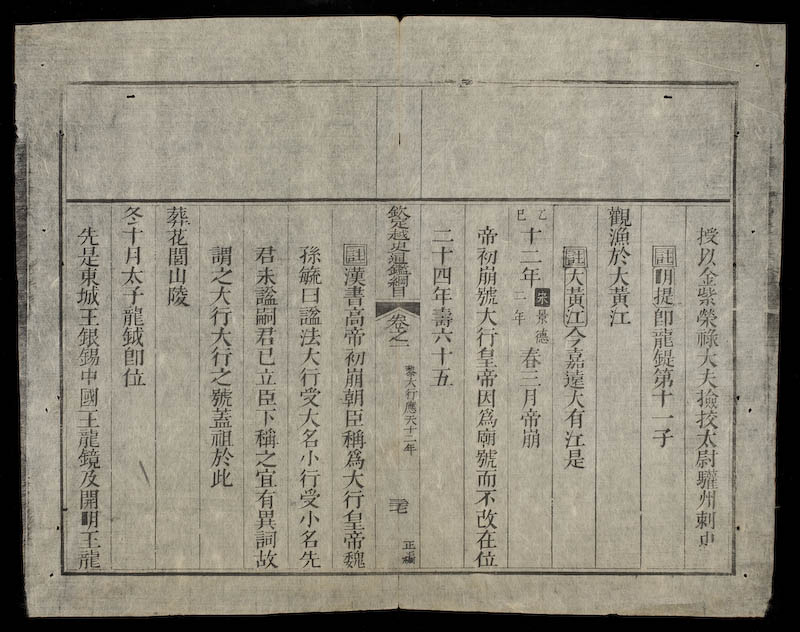 授以金紫榮祿大夫撿挍太尉驩州刺史
註明提卽龍鍉第十一子
觀漁於大黃江
註大黃江今嘉遠大有江是
乙巳十二年宋景德二年春三月帝崩
帝初崩號大行皇帝因爲廟號而不改在位
二十四年壽六十五
欽定越史通鑑綱目
卷之一
黎大行應天十二年
三七
正編
註漢書高帝初崩朝臣稱爲大行皇帝魏
孫毓曰諡法大行受大名小行受小名先
君未諡嗣君已立臣下稱之宜有異詞故
謂之大行大行之號蓋祖於此
葬花閭山陵
冬十月太子龍鉞卽位
先是東城王銀錫中國王龍鏡及開明王龍